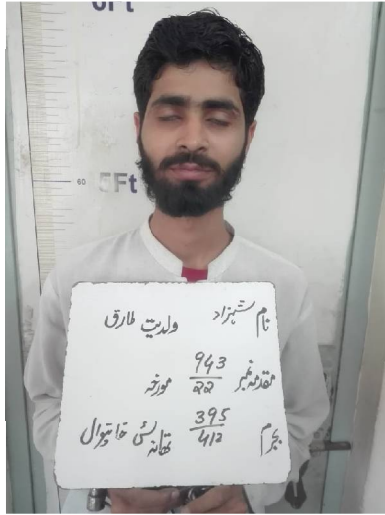 6Ft
60 5Ft
نام شہزاد ولدیت طارق
مقدمہ نمبر 943/22 مورخہ
بجرم 395/412 تھانہ سٹی خانیوال